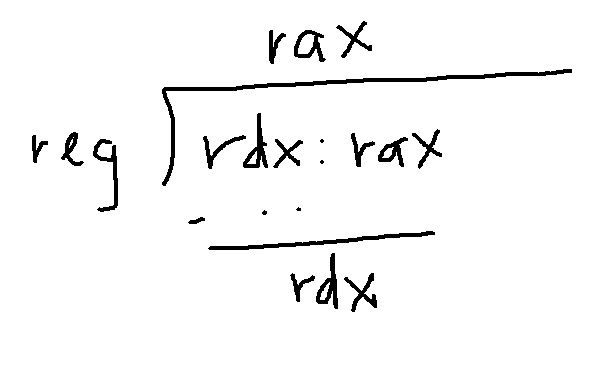 rax
reg rdx: rax
- . .
rdx